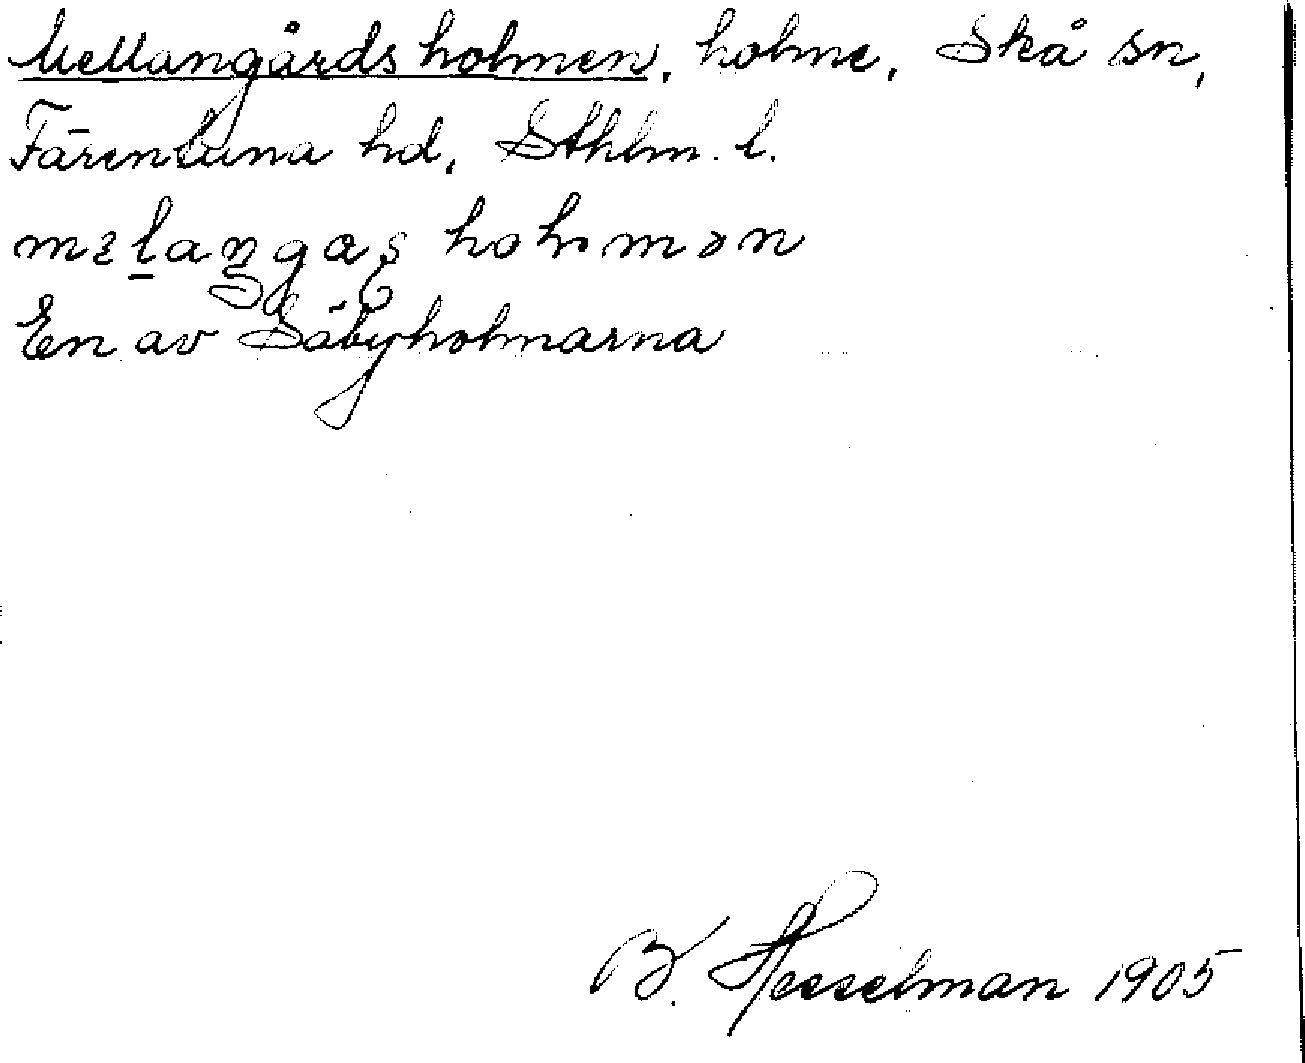 Mellangårdsholmen, holme, Skå sn,
Färentuna hd, Sthlm. l.
En av Säbyholmarna
B. Hesselman 1905